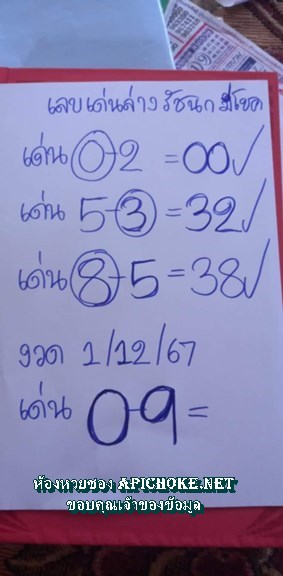 เลขเด่นล่าง รัชนก มีโชค
เด่น 0-2 =00✓
เด่น 5-3 =32✓
เด่น 8-5 =38✓
งวด 1/12/67
เด่น 0-9 =
ห้องหวยซอง APICHOKE.NET
ขอบคุณเจ้าของข้อมูล